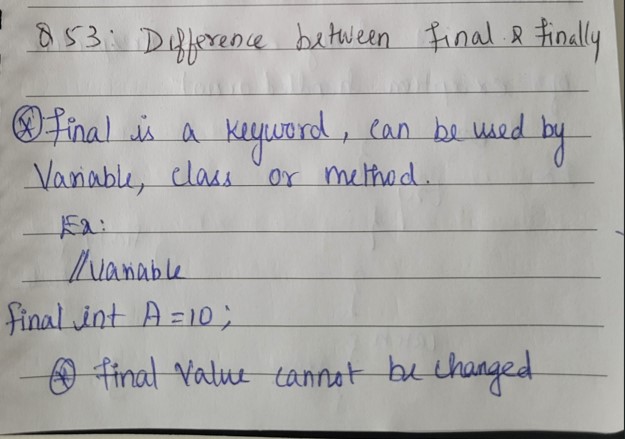 Q 53: Difference between final & finally
⊛ final is a keyword, can be used by
Variable, class or method.
Ex:
//variable
final int A = 10;
⊛ final value cannot be changed